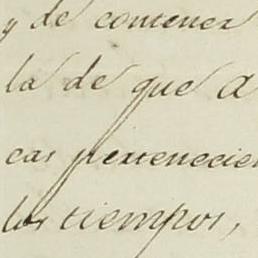 y de contener
la de que a
cas pertenecien
los tiempos,